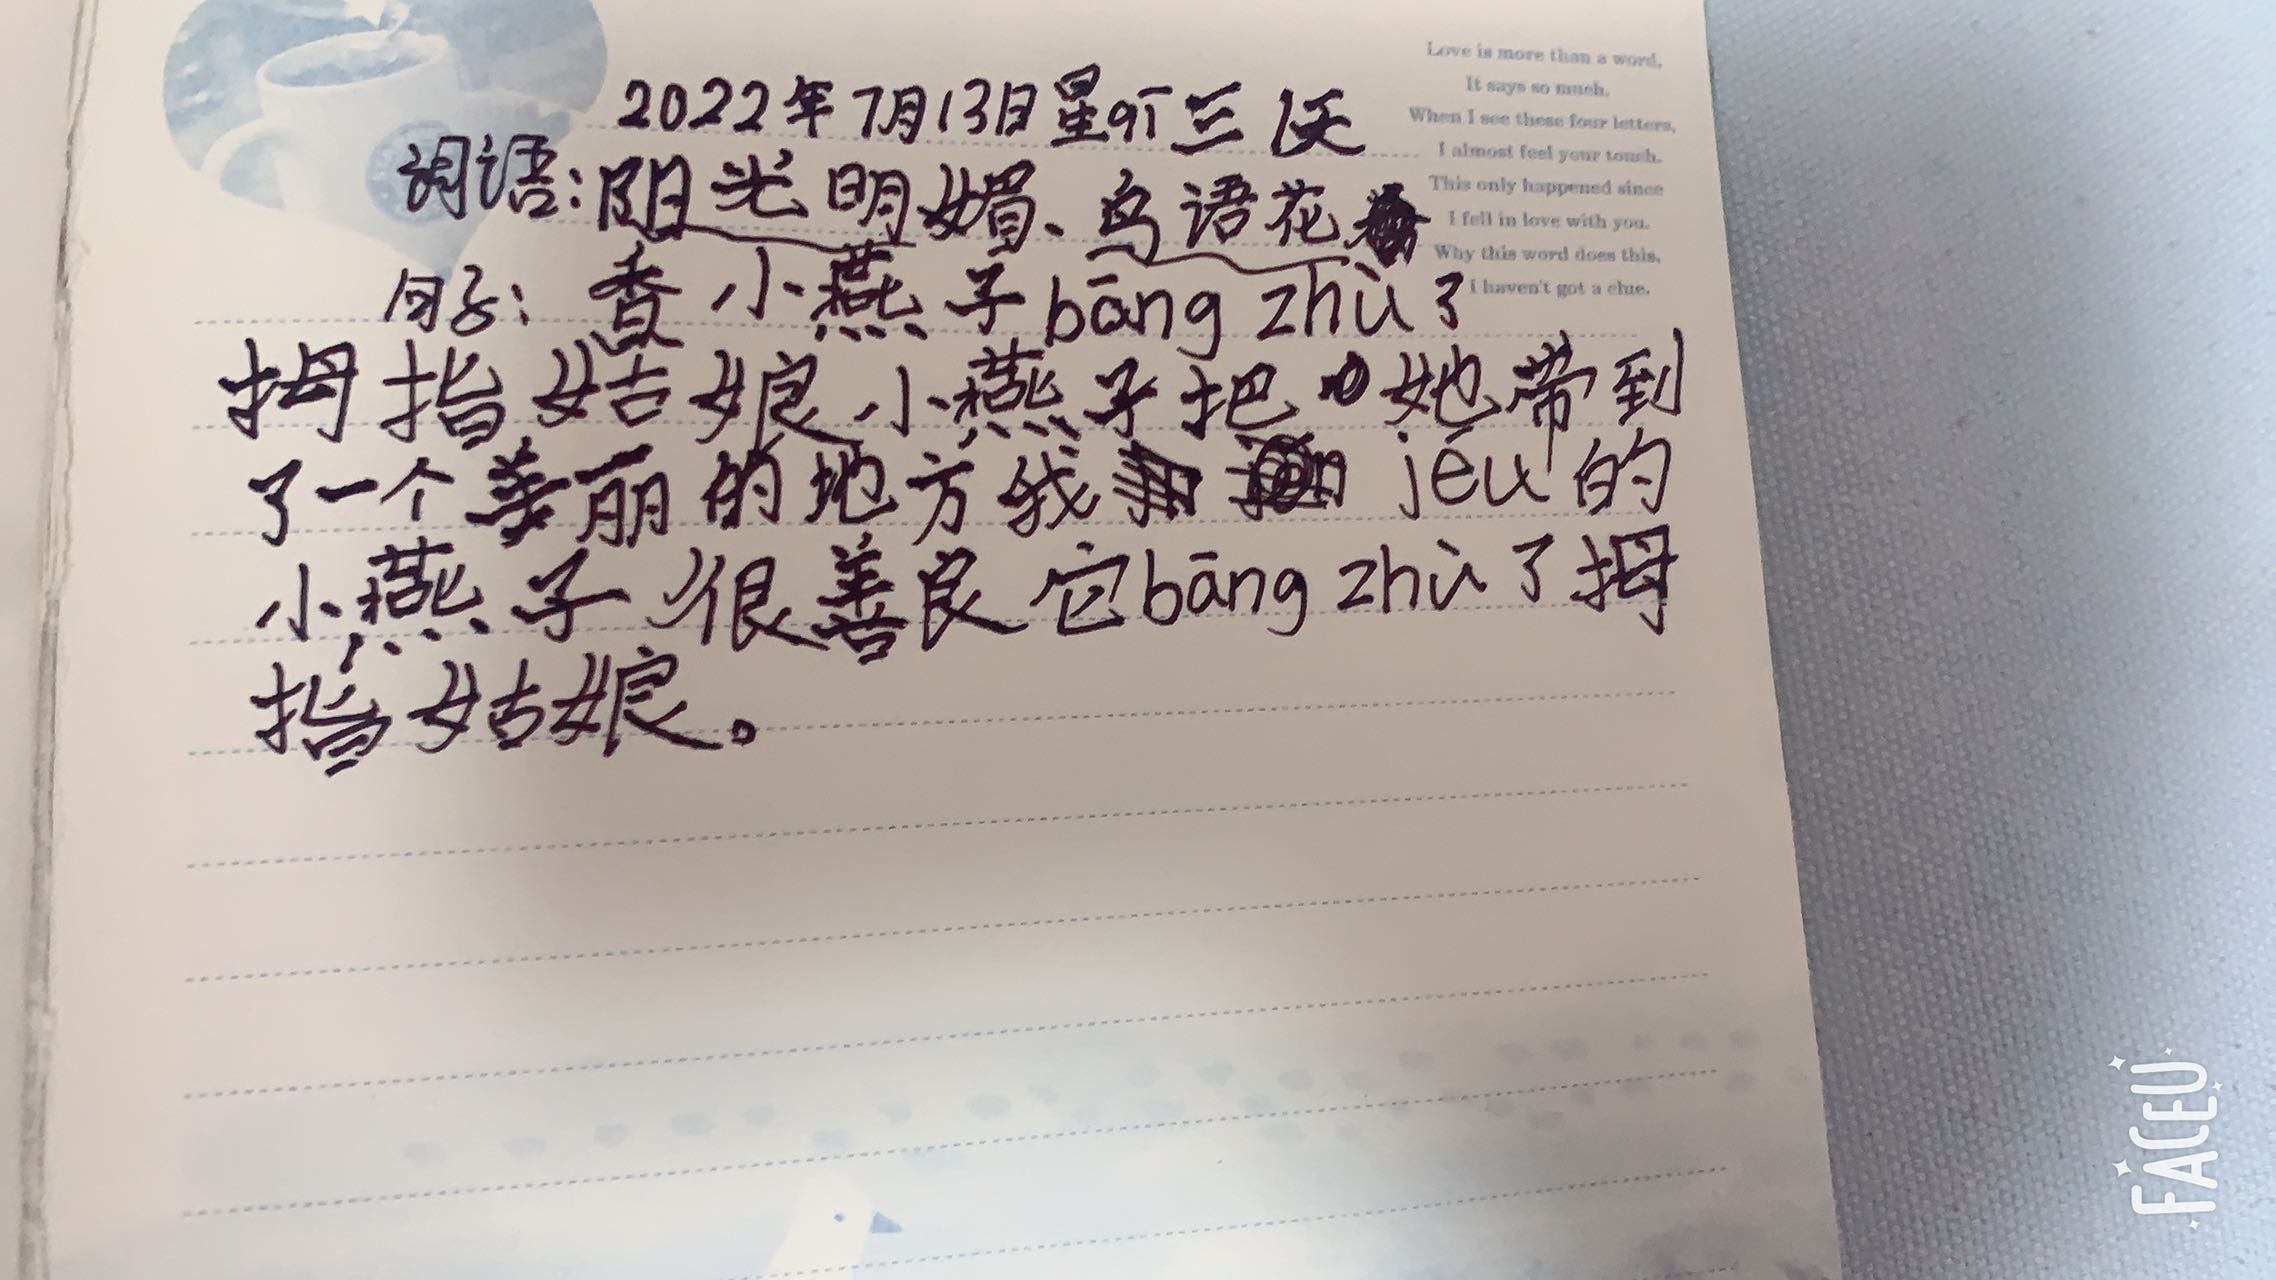 2022年7月13日星qī三1天
词语:阳光明媚、鸟语花
句子:香小燕子bāng zhù了
拇指姑娘小燕子把她带到
了一个美丽的地方我 jéu的
小燕子很善良它bāng zhù了拇
指姑娘。
Love is more than a word,
It says so much.
When I see these four letters,
I almost feel your touch.
This only happened since
I fell in love with you.
Why this word does this,
I haven't got a clue.
FACEU